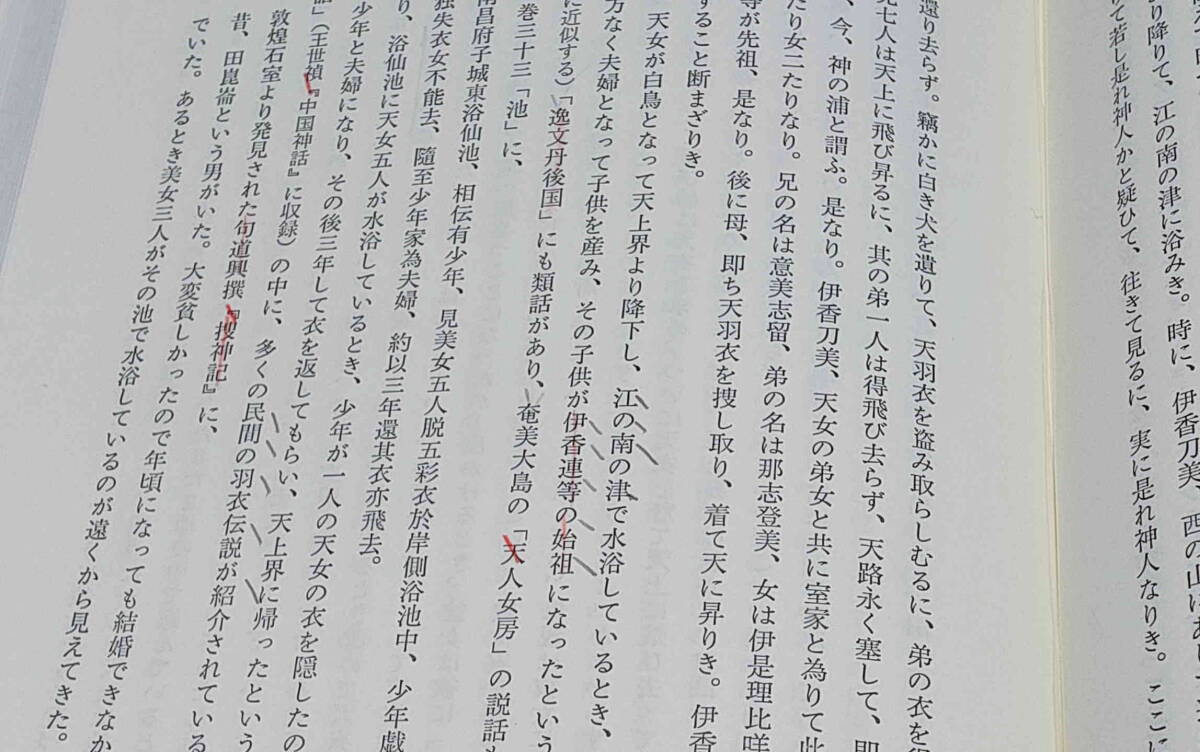 り降りて、江の南の津に浴みき。時に、伊香刀美、西の山にあ
て若し是れ神人かと疑ひて、往きて見るに、実に是れ神人なりき。ここに
還り去らず。竊かに白き犬を遺りて、天羽衣を盗み取らしむるに、弟の衣を得
兄七人は天上に飛び昇るに、其の弟一人は得飛び去らず、天路永く塞して、即
、今、神の浦と謂ふ。是なり。伊香刀美、天女の弟女と共に室家と為りて此
たり女二たりなり。兄の名は意美志留、弟の名は那志登美、女は伊是理比咩
等が先祖、是なり。後に母、即ち天羽衣を捜し取り、着て天に昇りき。伊香
すること断まざりき。
天女が白鳥となって天上界より降下し、江の南の津で水浴しているとき、
方なく夫婦となって子供を産み、その子供が伊香連等の始祖になったという
に近似する)「逸文丹後国」にも類話があり、奄美大島の「天人女房」の説話も
巻三十三「池」に、
南昌府子城東浴仙池、相伝有少年、見美女五人脱五彩衣於岸側浴池中、少年戯
独失衣女不能去、隨至少年家為夫婦、約以三年還其衣亦飛去。
り、浴仙池に天女五人が水浴しているとき、少年が一人の天女の衣を隠したの
少年と夫婦になり、その後三年して衣を返してもらい、天上界に帰ったという
話」(王世禎『中国神話』に収録)の中に、多くの民間の羽衣伝説が紹介されている
敦煌石室より発見された句道興撰『捜神記』に、
昔、田崑崙という男がいた。大変貧しかったので年頃になっても結婚できなか
でいた。あるとき美女三人がその池で水浴しているのが遠くから見えてきた。